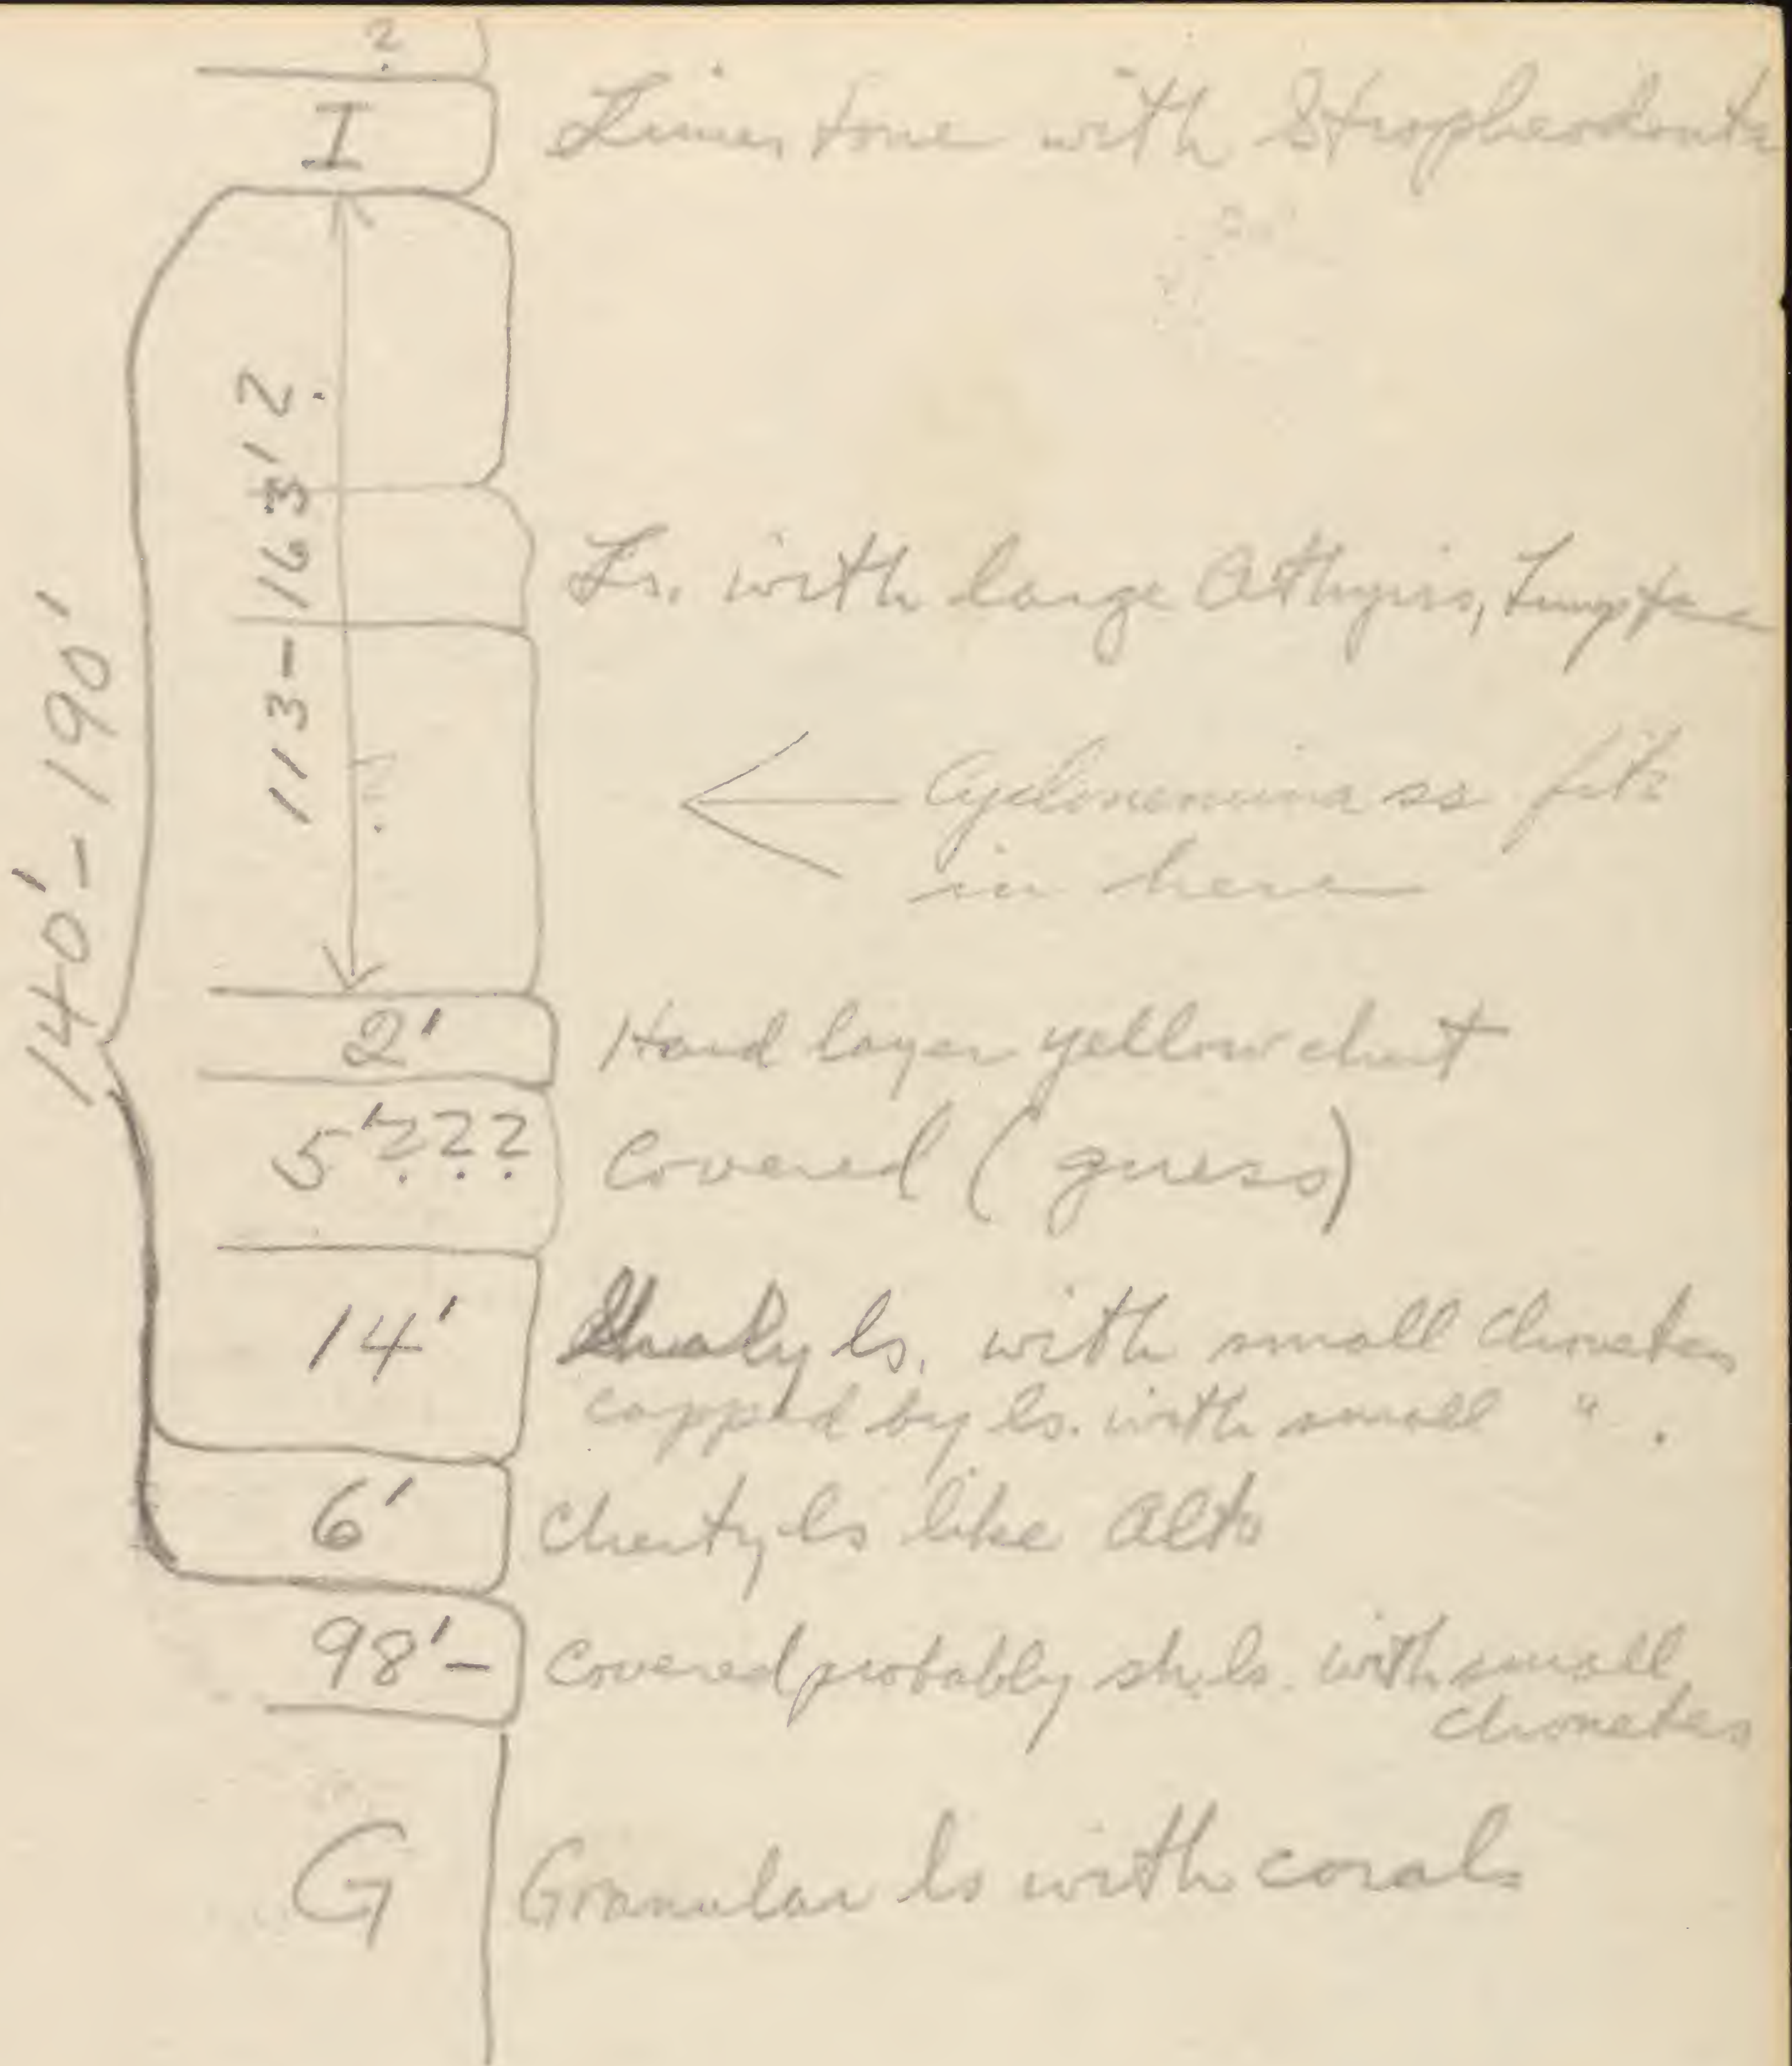 ?
I Limestone with Stropheodonta
113-163'?
Ls. with large Athyris,
?
Cyclonemina ss fits
in here
140'-190'
2' Hard layer yellow chert
5'??? Covered (guess)
14' Shaly ls. with small Chonetes
capped by ls. with small " .
6' Cherty ls like Alto
98'- Covered probably sh. ls. with small
Chonetes
G Granular ls with corals